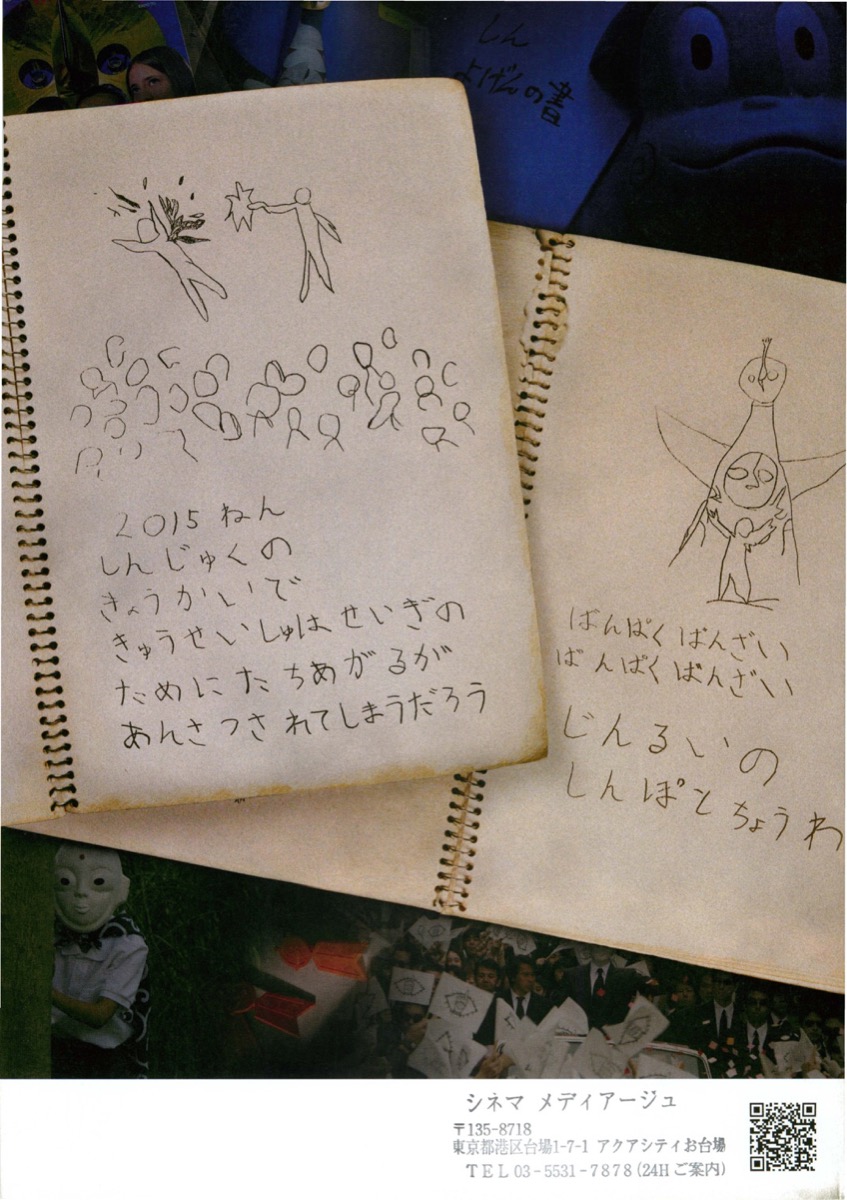 しん
よげんの書
2015ねん
しんじゅくの
きょうかいで
きゅうせいしゅはせいぎの
ためにたちあがるが
あんさつされてしまうだろう
ばんぱくばんざい
ばんぱくばんざい
じんるいの
しんぽとちょうわ
シネマ メディアージュ
〒135-8718
東京都港区台場1-7-1 アクアシティお台場
TEL 03-5531-7878(24Hご案内)